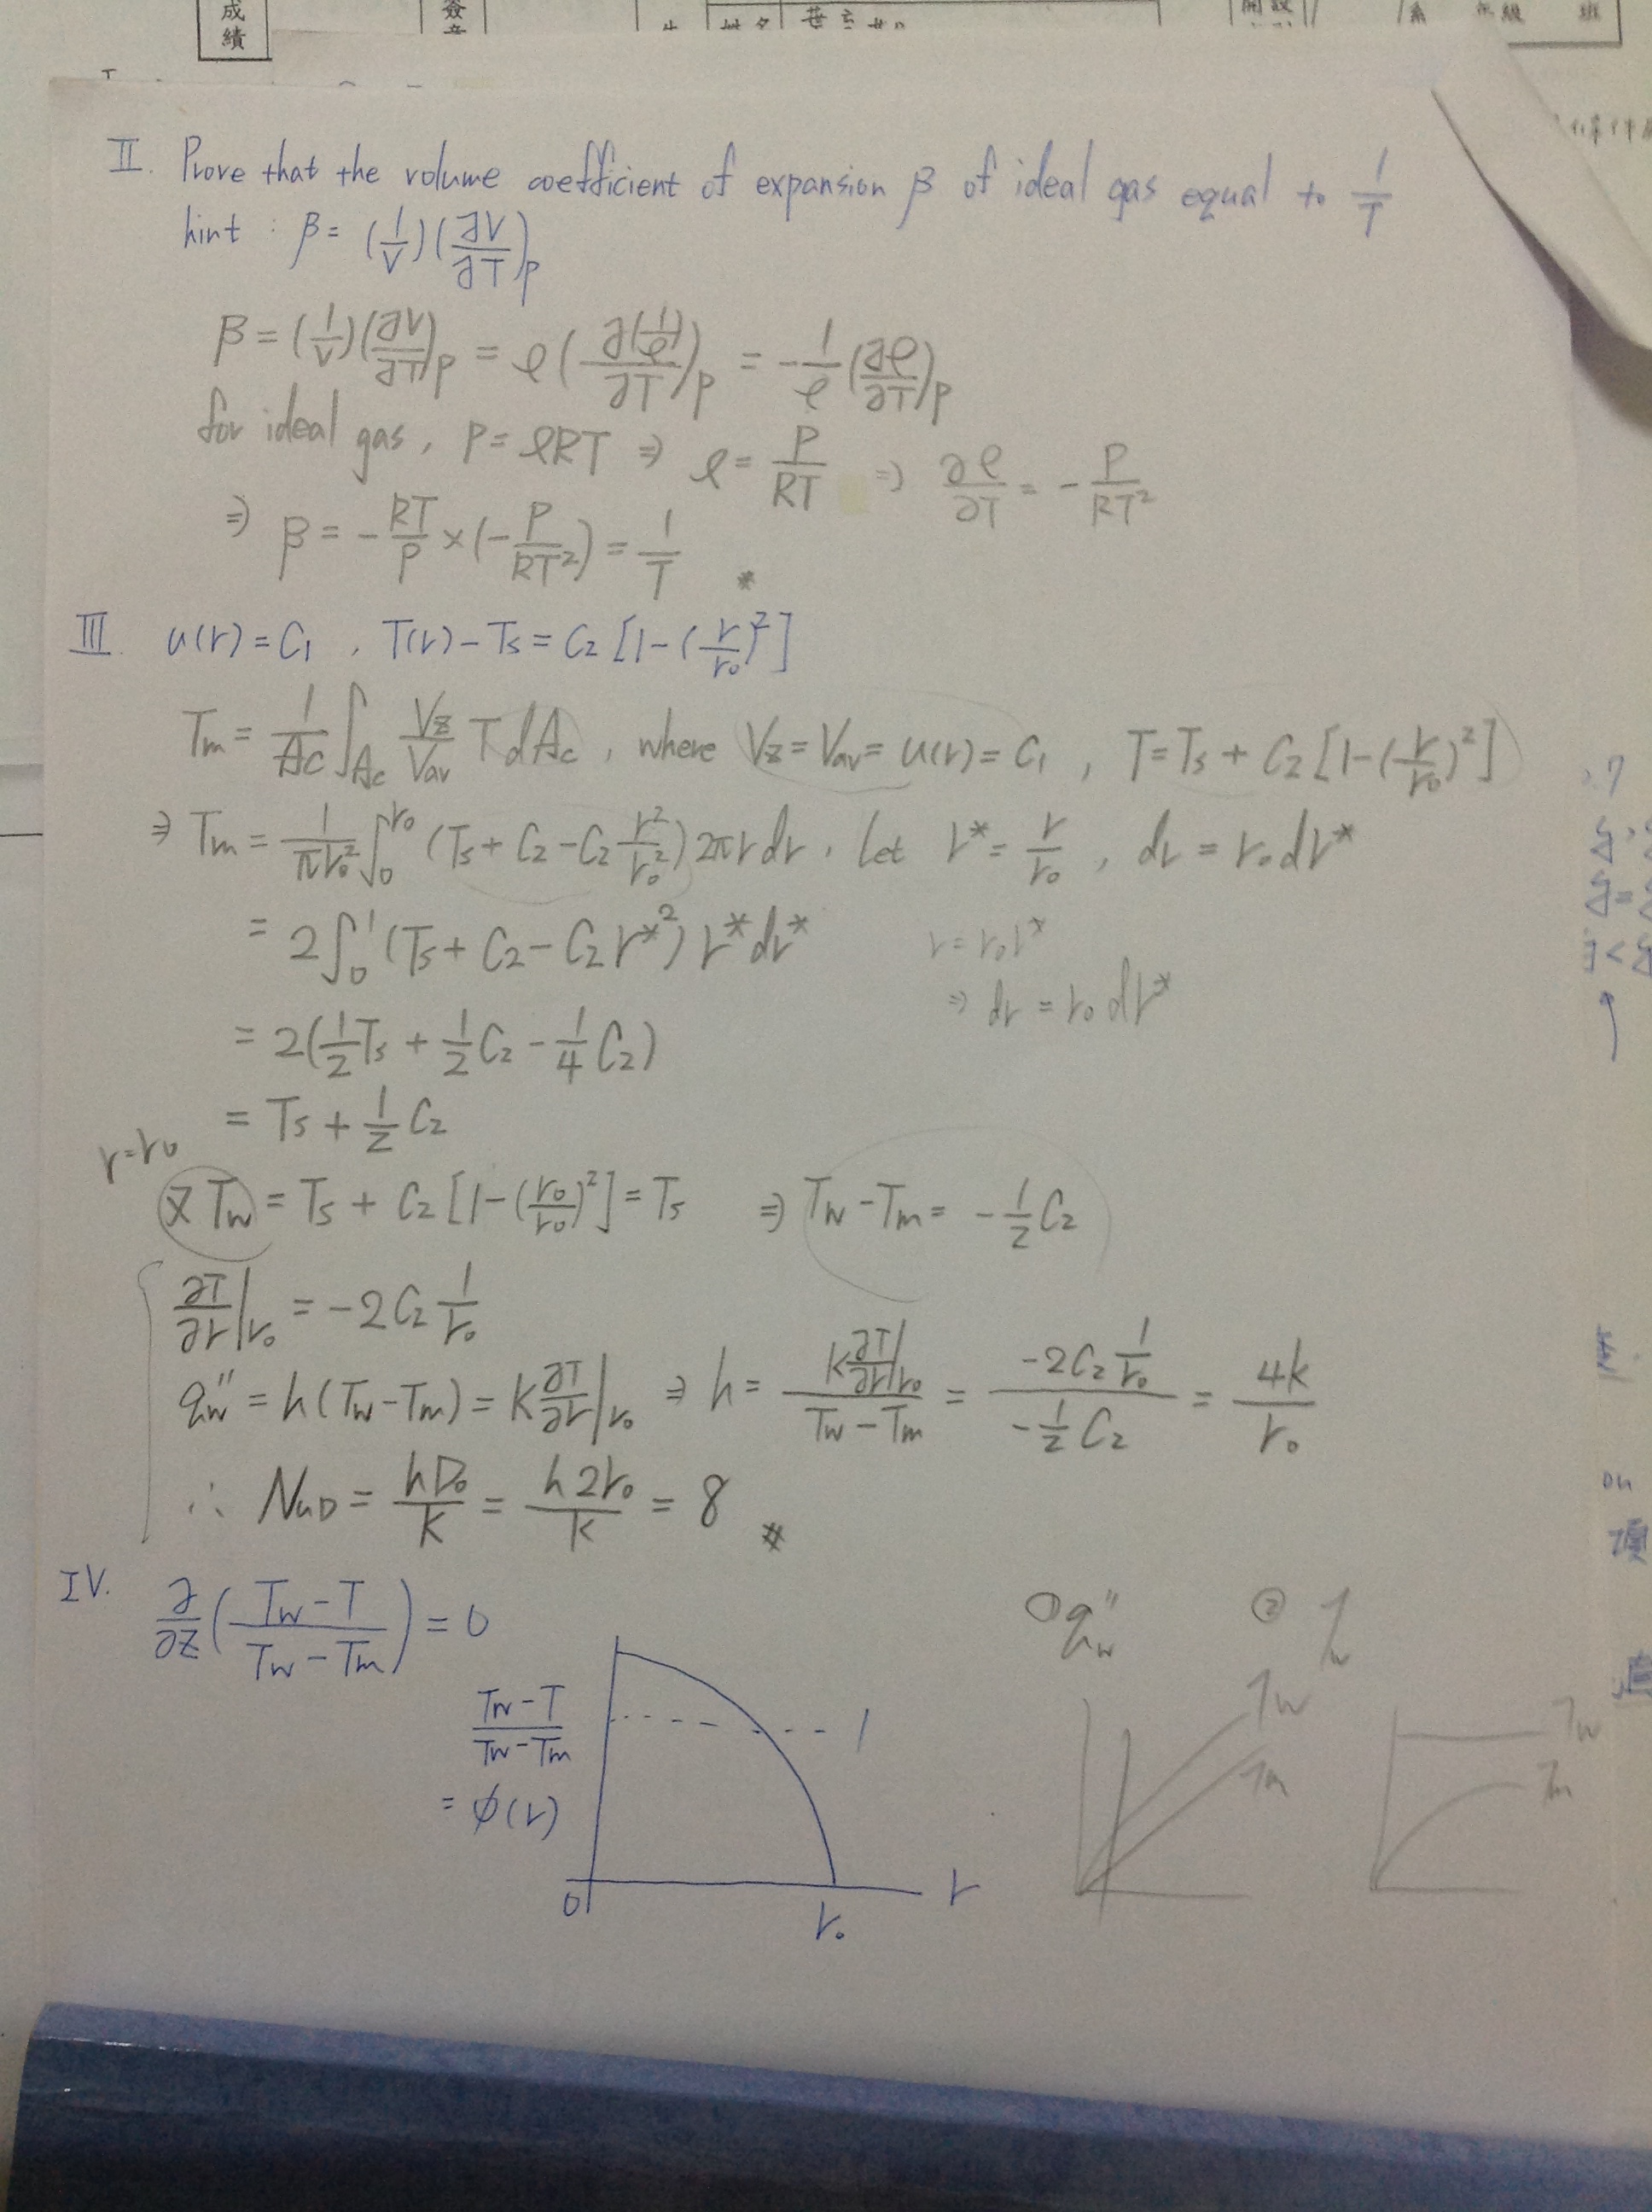 成績
II. Prove that the volume coefficient of expansion β of ideal gas equal to 1/T
hint : β = (1/V)(∂V/∂T)p
β = (1/V)(∂V/∂T)p = ρ(∂(1/ρ)/∂T)p = -1/ρ (∂ρ/∂T)p
for ideal gas, P = ρRT ⇒ ρ = P/RT ⇒ ∂ρ/∂T = -P/RT²
⇒ β = -RT/P × (-P/RT²) = 1/T *
III. u(r) = C₁ , T(r) - Ts = C₂ [1-(r/r₀)²]
Tm = 1/Ac ∫Ac Vz/Vav T dAc , where Vz = Vav = u(r) = C₁ , T = Ts + C₂ [1-(r/r₀)²]
⇒ Tm = 1/πr₀² ∫₀^r₀ (Ts + C₂ - C₂ r²/r₀²) 2πr dr , Let r* = r/r₀ , dr = r₀ dr*
= 2∫₀¹ (Ts + C₂ - C₂ r*²) r* dr* r = r₀r*
⇒ dr = r₀ dr*
= 2(1/2 Ts + 1/2 C₂ - 1/4 C₂)
= Ts + 1/2 C₂
r=r₀
又 Tw = Ts + C₂ [1-(r₀/r₀)²] = Ts ⇒ Tw - Tm = -1/2 C₂
∂T/∂r|r₀ = -2C₂ 1/r₀
qw'' = h(Tw - Tm) = K ∂T/∂r|r₀ ⇒ h = K ∂T/∂r|r₀ / (Tw - Tm) = -2C₂ 1/r₀ / (-1/2 C₂) = 4k/r₀
∴ NuD = hD₀/K = h2r₀/K = 8 #
IV. ∂/∂z ((Tw - T)/(Tw - Tm)) = 0
① qw'' ②
(Tw - T)/(Tw - Tm)
= φ(r)
1
0
r₀
r
Tw
Tm
Tw
Tm
on
項